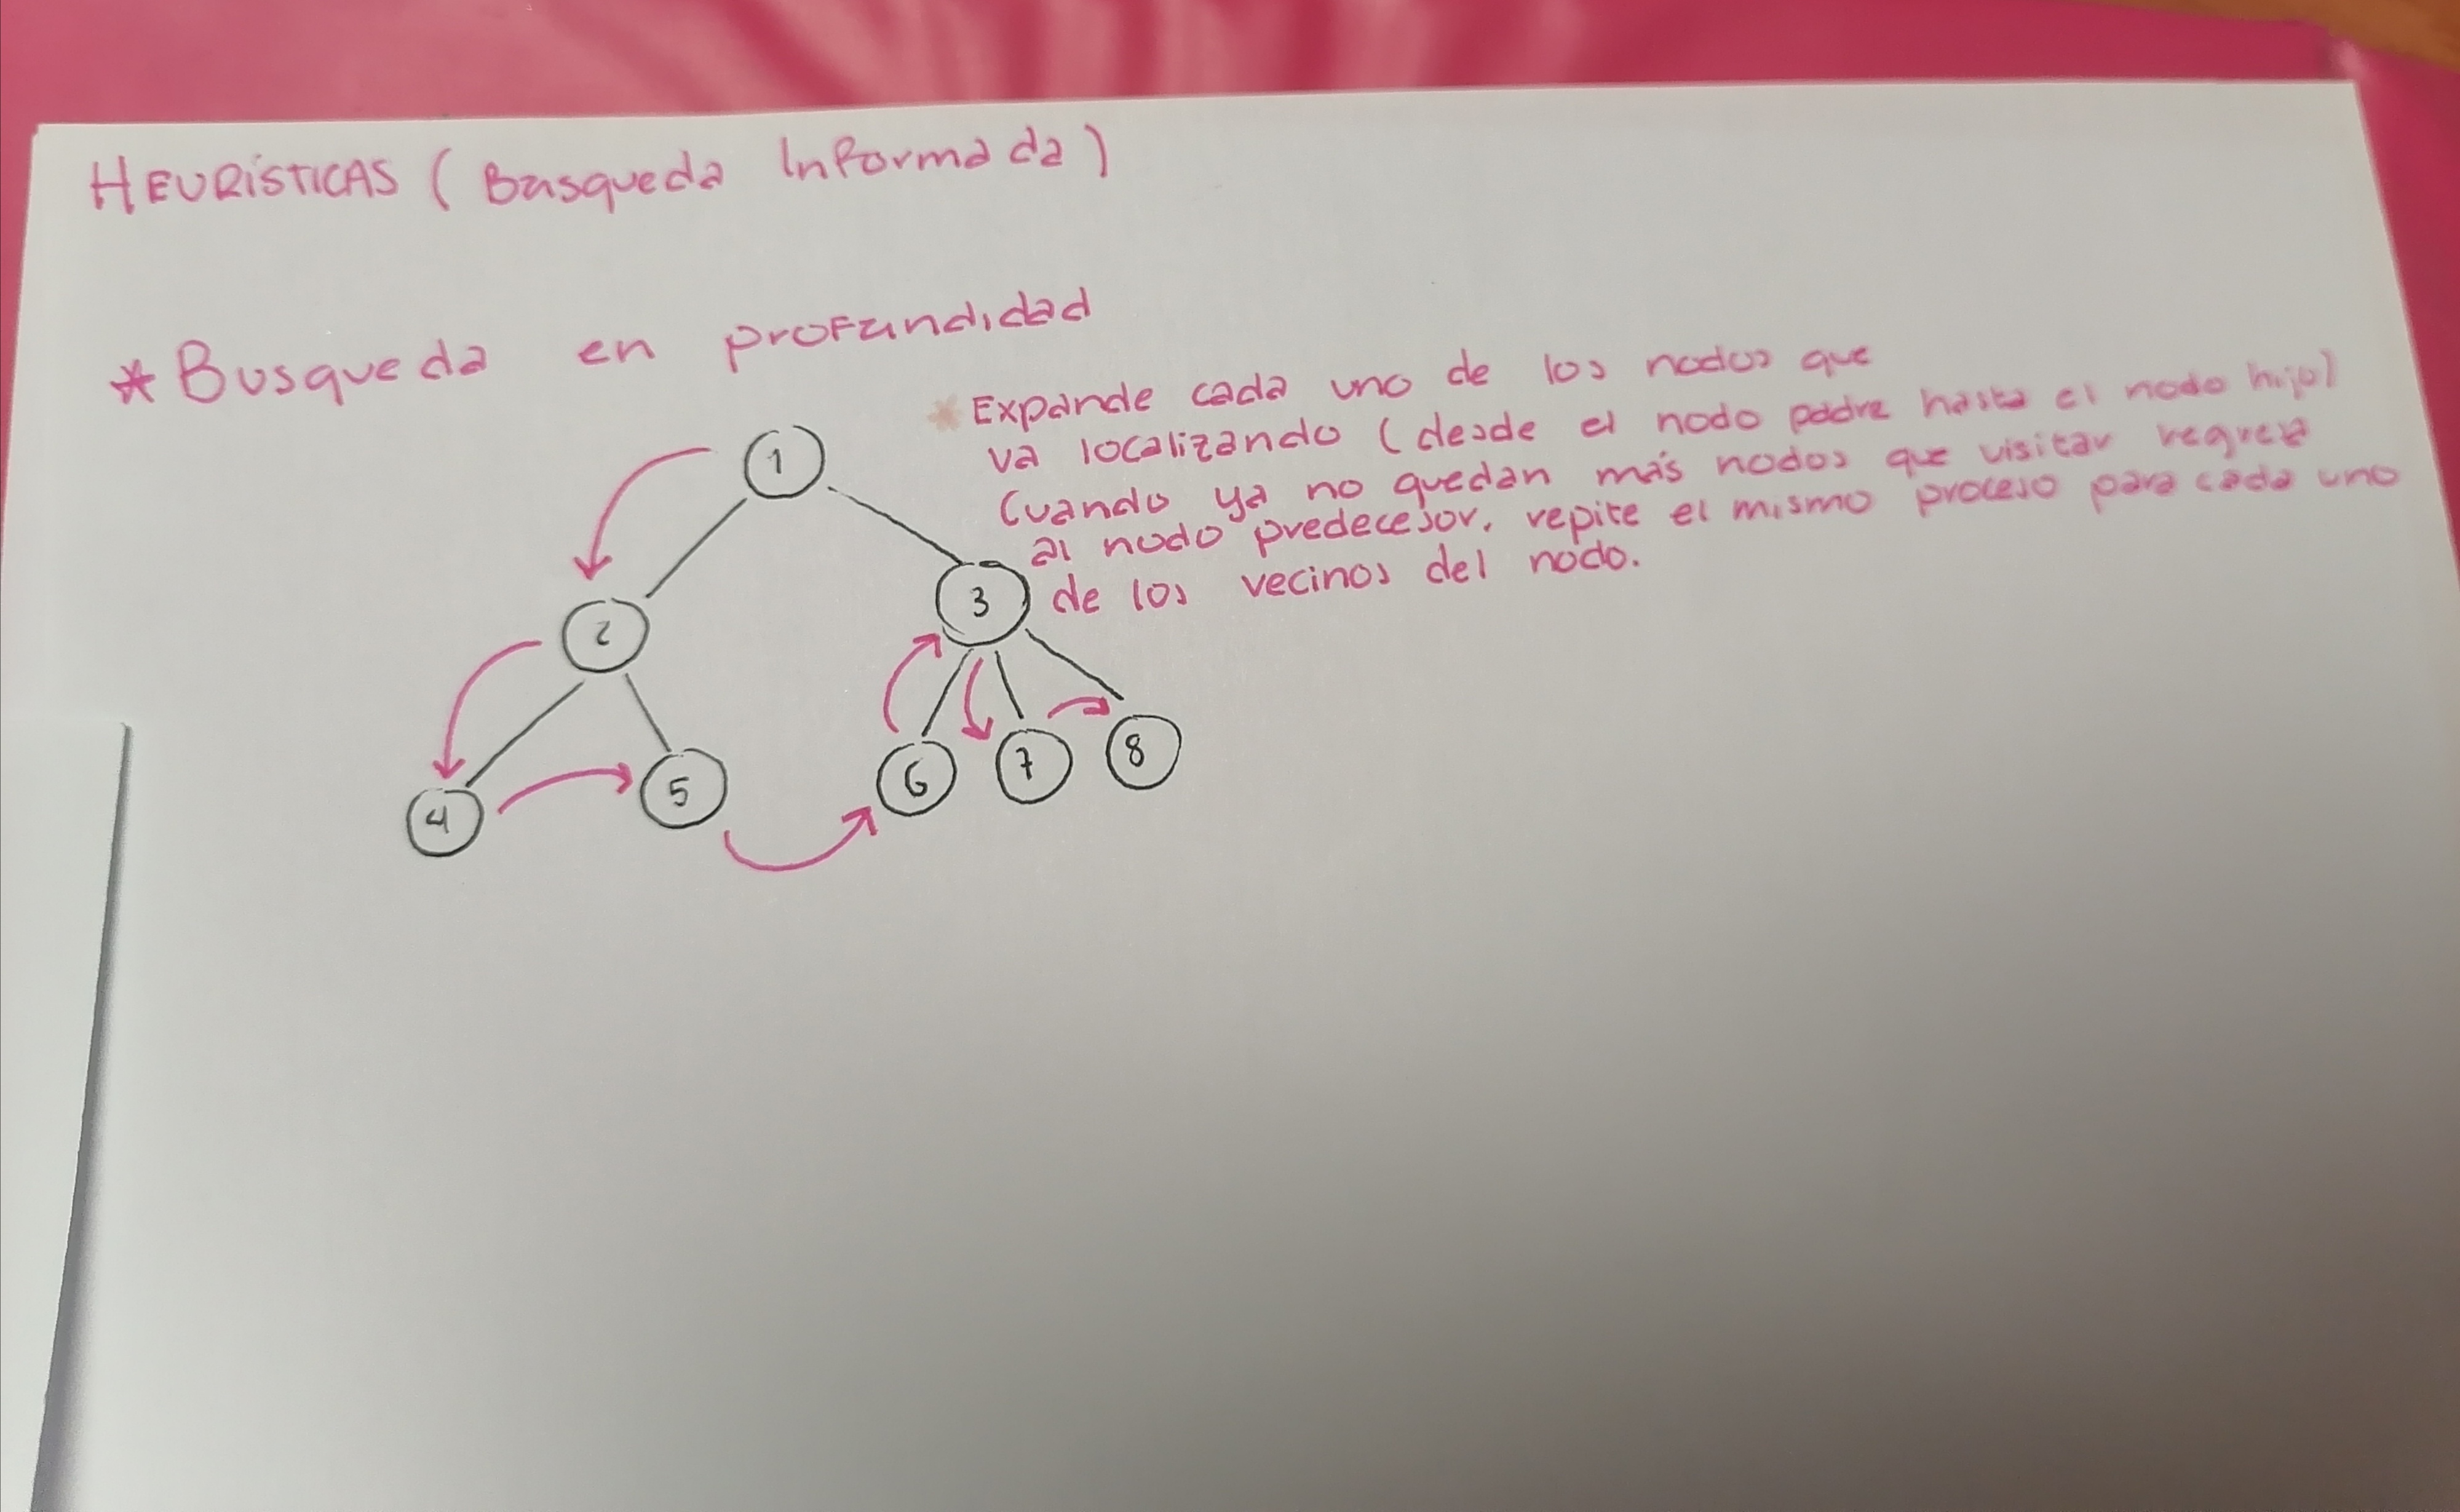 HEURÍSTICAS (Busqueda Informada)
* Busqueda en profundidad
* Expande cada uno de los nodos que
va localizando (desde el nodo padre hasta el nodo hijo)
Cuando ya no quedan más nodos que visitar regresa
al nodo predecesor, repite el mismo proceso para cada uno
de los vecinos del nodo.
1
2
3
4
5
6
7
8